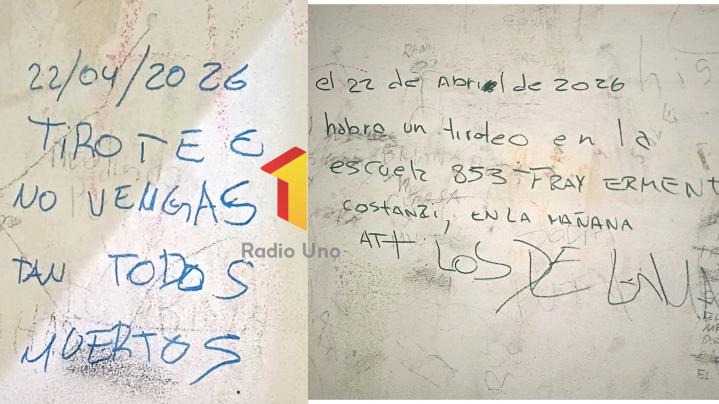 22/04/2026
TIROTEO
NO VENGAS
TAN TODOS
MUERTOS
Radio Uno
el 22 de Abril de 2026
habra un tiroteo en la
escuela 853 FRAY ERMENT
COSTANZI, EN LA MAÑANA
ATT LOS DE